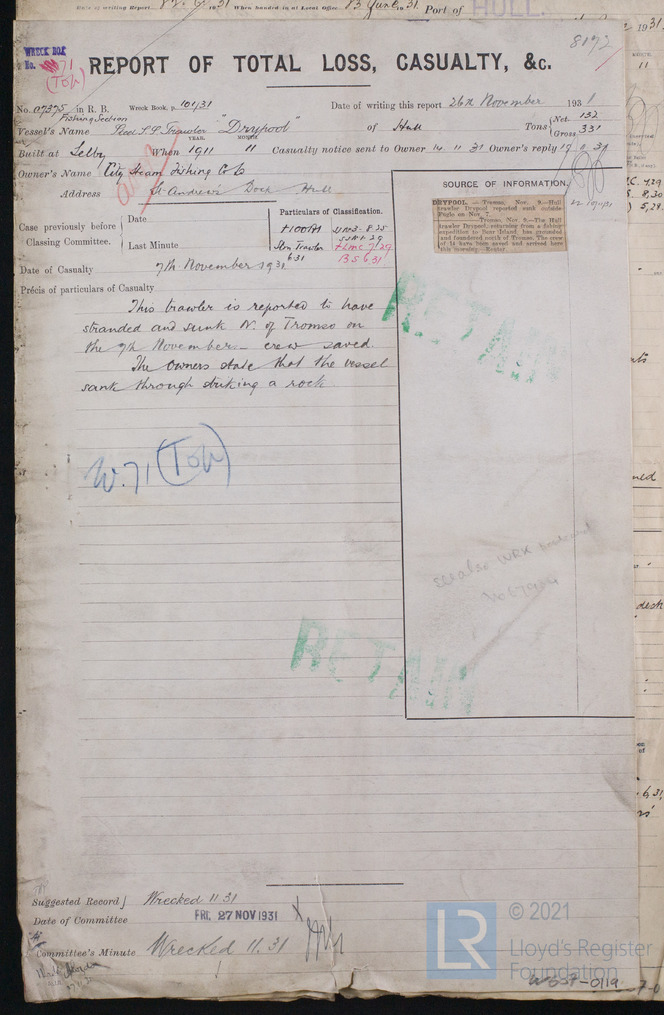 Date of writing Report
When handed in at Local Office
Port of HULL.
8192
WRECK BOX
No. 71
(Top)
REPORT OF TOTAL LOSS, CASUALTY, &c.
No. 07375 in R. B. Wreck Book, p. 101/31 Date of writing this report 26th November 1931
Fishing Section
Vessel's Name Steel S.S. Trawler "Drypool" of Hull Tons { Net 132
Gross 331
YEAR. MONTH.
Built at Selby When 1911 11 Casualty notice sent to Owner 14 11 31 Owner's reply
Owner's Name City Steam Fishing Co Ld
Address St. Andrew's Dock Hull
SOURCE OF INFORMATION.
Case previously before
Classing Committee.
Date
Last Minute
Particulars of Classification.
+100A1
Stm Trawler
6.31
+LMC 7/29
BS 6 31
Date of Casualty 7th November 1931
DRYPOOL.—Tromso, Nov. 9.—Hull
trawler Drypool reported sunk outside
Fugle on Nov. 7.
Tromso, Nov. 9.—The Hull
trawler Drypool, returning from a fishing
expedition to Bear Island, has grounded
and foundered north of Tromso. The crew
of 14 have been saved and arrived here
this morning.—Reuter.
Précis of particulars of Casualty
This trawler is reported to have
stranded and sunk N. of Tromso on
the 7th November — crew saved.
The Owners state that the vessel
sank through striking a rock
RETAIN
W.71 (Top)
see also WRK
RETAIN
Suggested Record Wrecked 11.31
Date of Committee FRI. 27 NOV 1931
Committee's Minute Wrecked 11.31
LR
© 2021
Lloyd's Register
Foundation
W637-0119